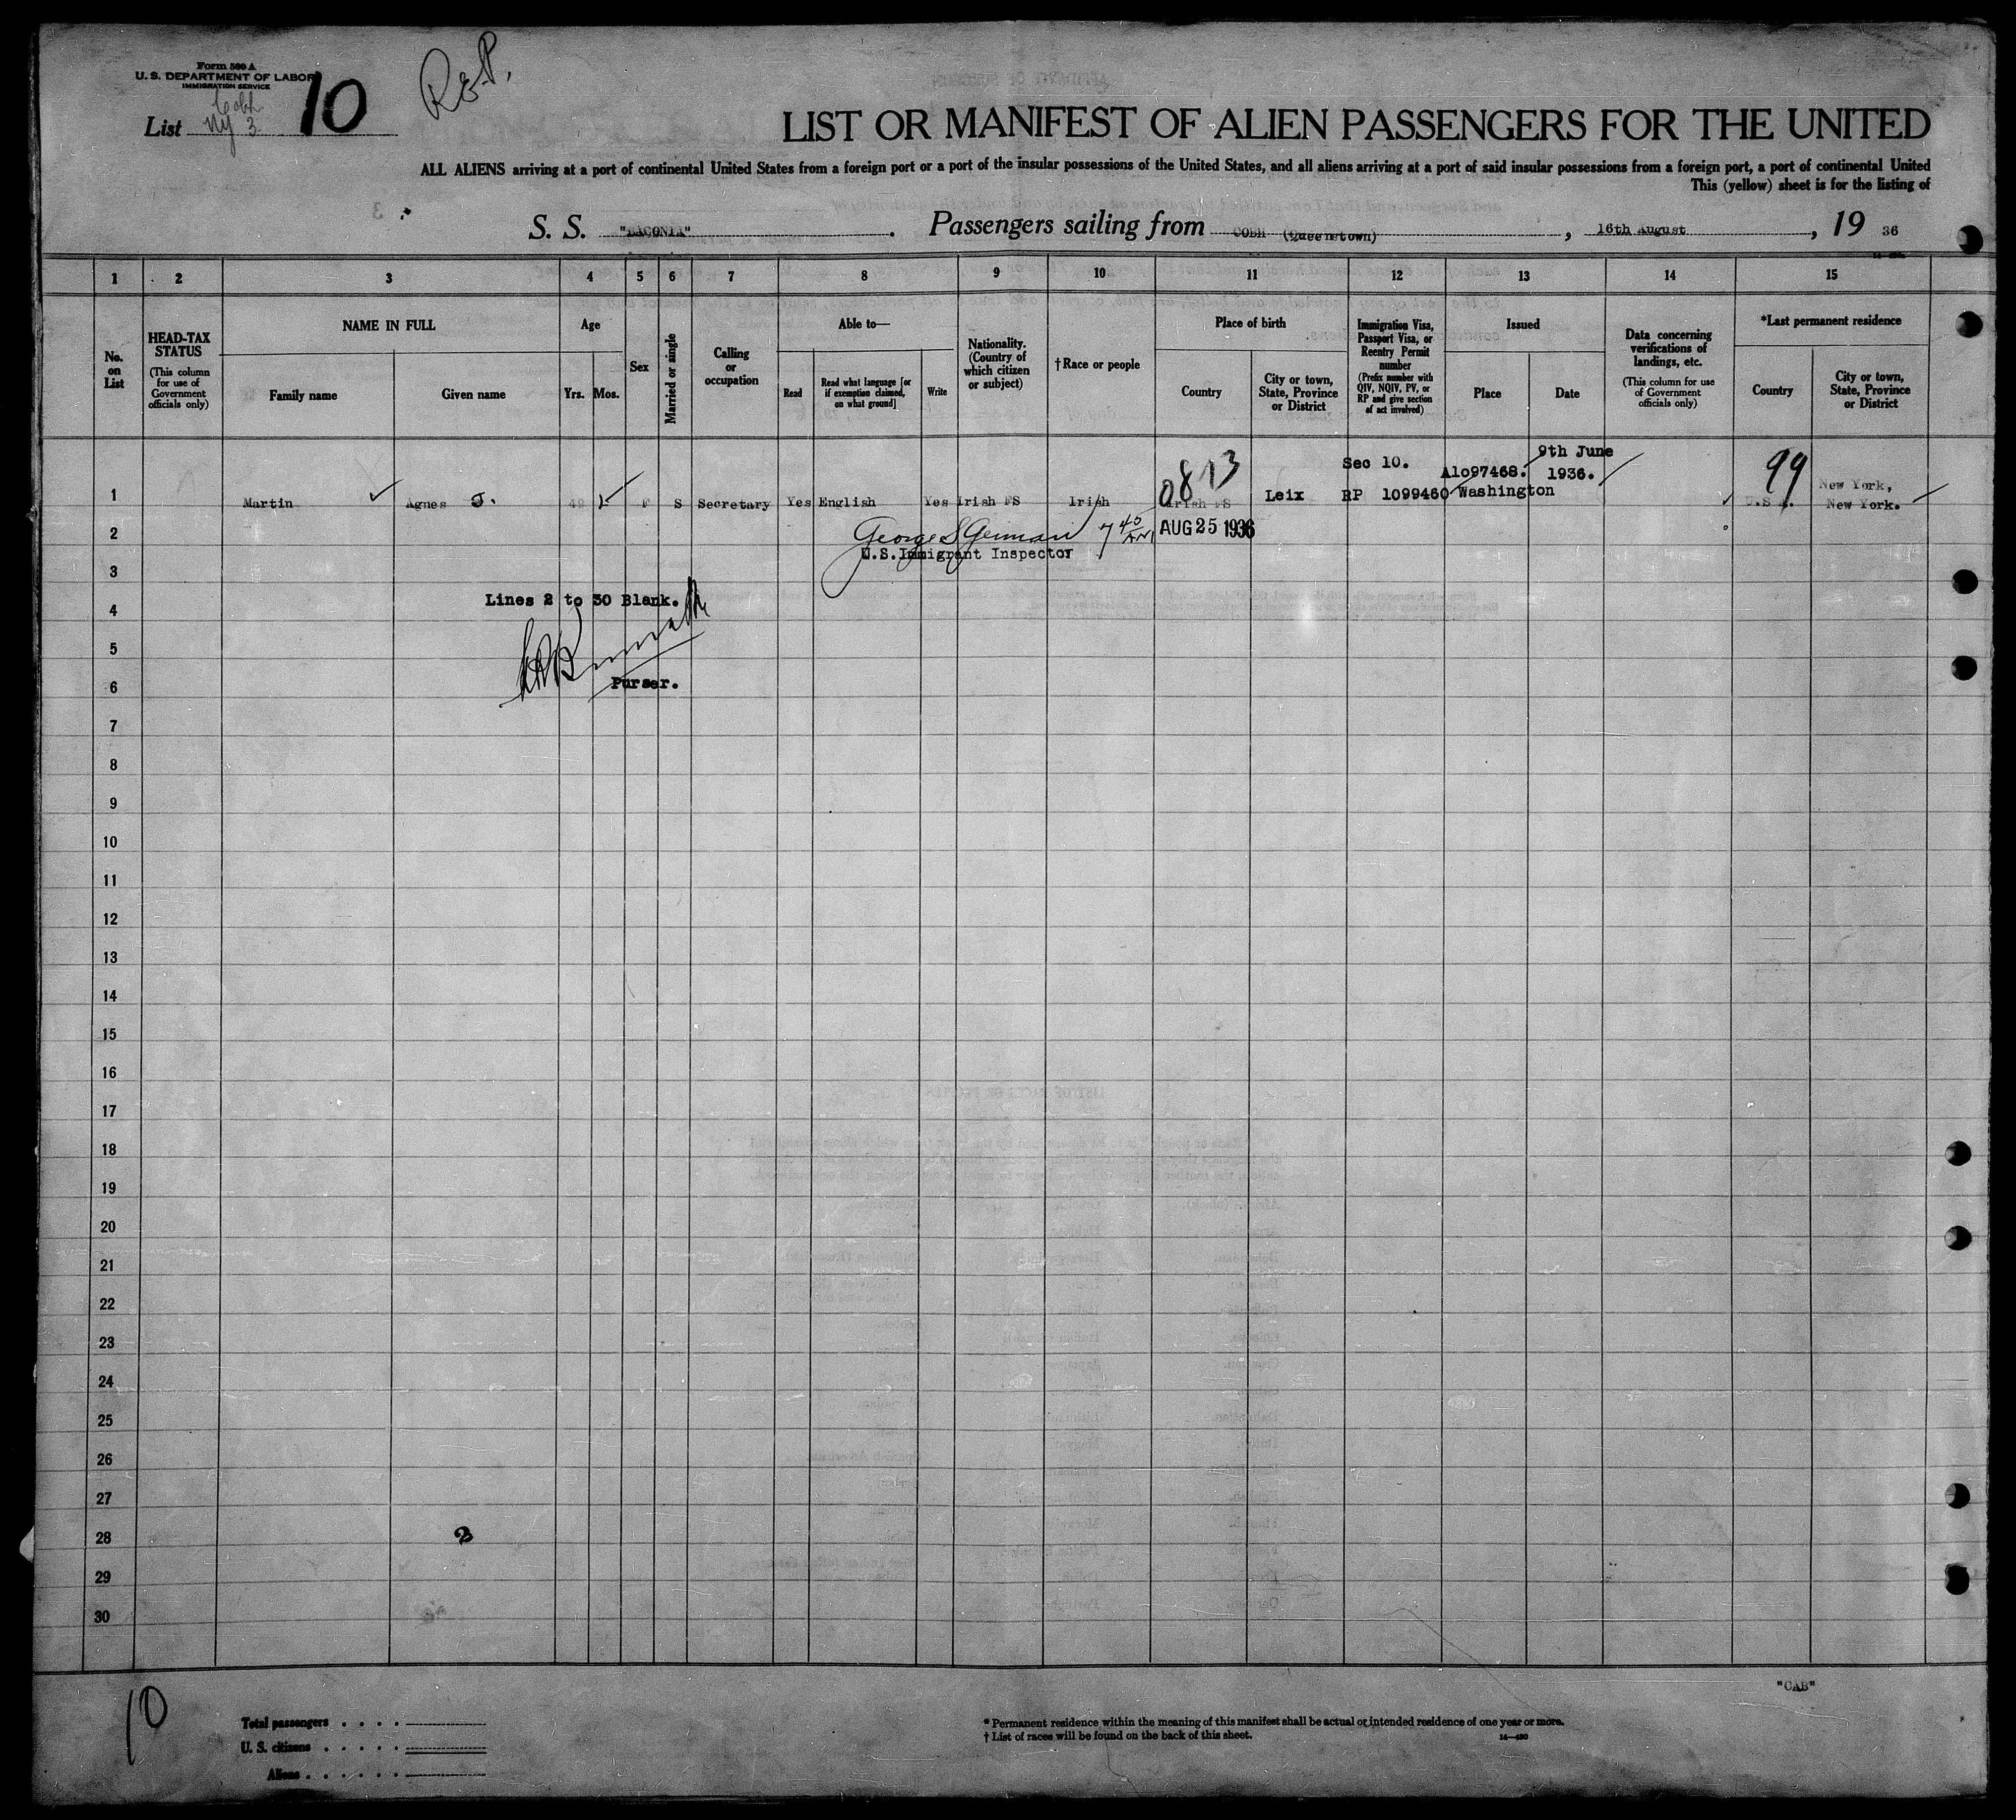 Form 500 A
U. S. DEPARTMENT OF LABOR
IMMIGRATION SERVICE
Cobh
List NY 3 10
R&P.
LIST OR MANIFEST OF ALIEN PASSENGERS FOR THE UNITED
ALL ALIENS arriving at a port of continental United States from a foreign port or a port of the insular possessions of the United States, and all aliens arriving at a port of said insular possessions from a foreign port, a port of continental United
This (yellow) sheet is for the listing of
S. S. "LACONIA". Passengers sailing from COBH (Queenstown), 16th August, 19 36
1 2 3 4 5 6 7 8 9 10 11 12 13 14 15
No. on List
HEAD-TAX STATUS
(This column for use of Government officials only)
NAME IN FULL
Family name
Given name
Age
Yrs. Mos.
Sex
Married or single
Calling or occupation
Able to—
Read
Read what language [or if exemption claimed, on what ground]
Write
Nationality. (Country of which citizen or subject)
† Race or people
Place of birth
Country
City or town, State, Province or District
Immigration Visa, Passport Visa, or Reentry Permit number
(Prefix number with QIV, NQIV, PV, or RP and give section of act involved)
Issued
Place
Date
Data concerning verifications of landings, etc.
(This column for use of Government officials only)
*Last permanent residence
Country
City or town, State, Province or District
Sec 10. A1097468. 9th June 1936.
0813
99
1 Martin Agnes J. 49 F S Secretary Yes English Yes Irish FS Irish Irish FS Leix RP 1099460 Washington U.S.A. New York, New York.
2 George S German 7 40 AM AUG 25 1936
U.S.Immigrant Inspector
3
Lines 2 to 30 Blank.
4
5
6 Purser.
7
8
9
10
11
12
13
14
15
16
17
18
19
20
21
22
23
24
25
26
27
28 2
29
30
"CAB"
10
Total passengers
U. S. citizens
Aliens
* Permanent residence within the meaning of this manifest shall be actual or intended residence of one year or more.
† List of races will be found on the back of this sheet. 14—430